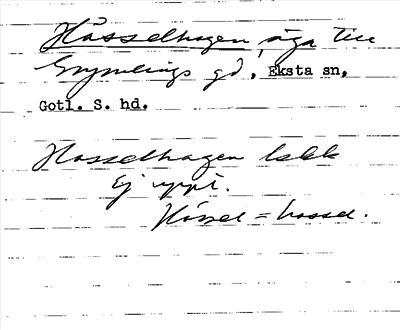 Hässelhagen, äga till
Smylings gd, Eksta sn,
Gotl. S. hd.
Hasselhagen
Ej uppt.
Hässel = hassel.